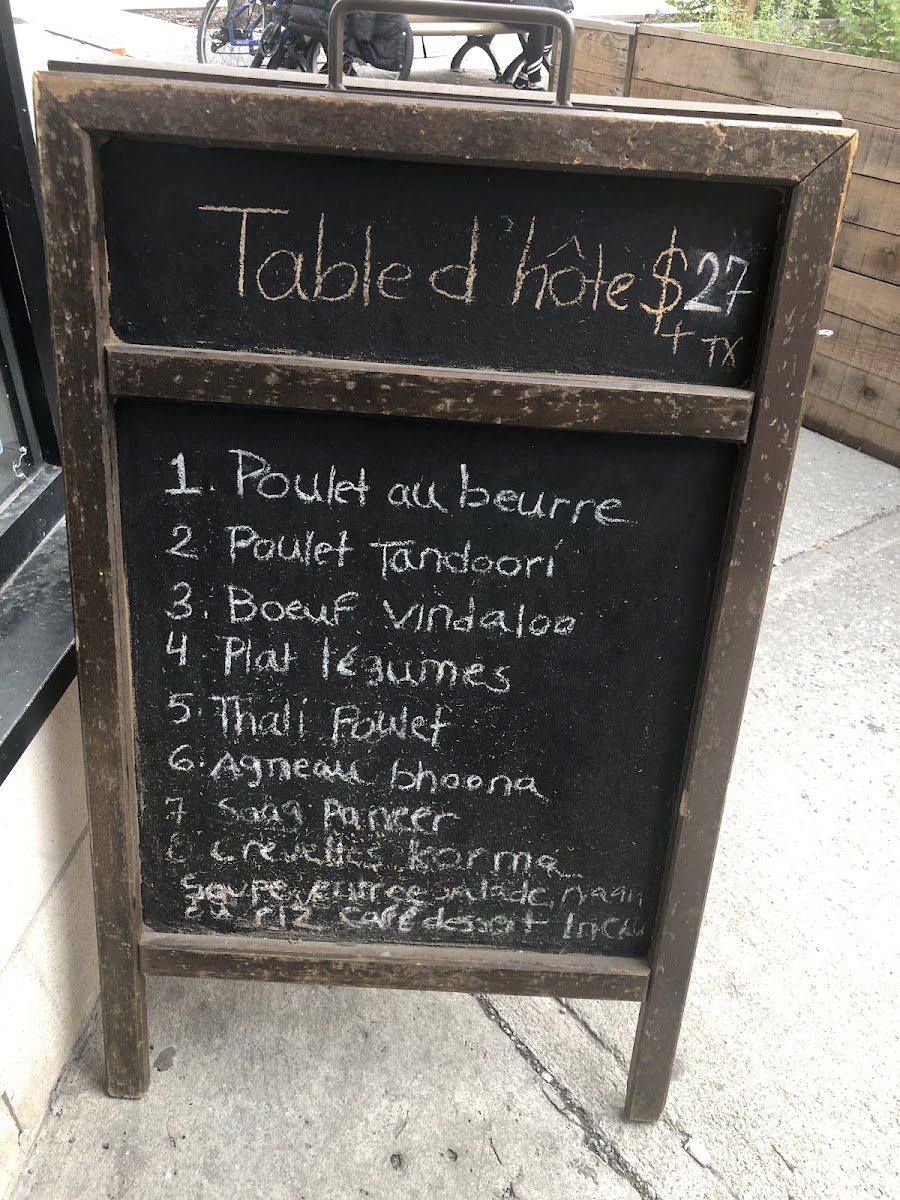 Table d'hôte $27
+ TX
1. Poulet au beurre
2. Poulet Tandoori
3. Boeuf vindaloo
4 Plat légumes
5. Thali Poulet
6. Agneau bhoona
7 Saag Paneer
8 crevettes korma
Soupe, entree salade, naan
ou riz café dessert Inclu